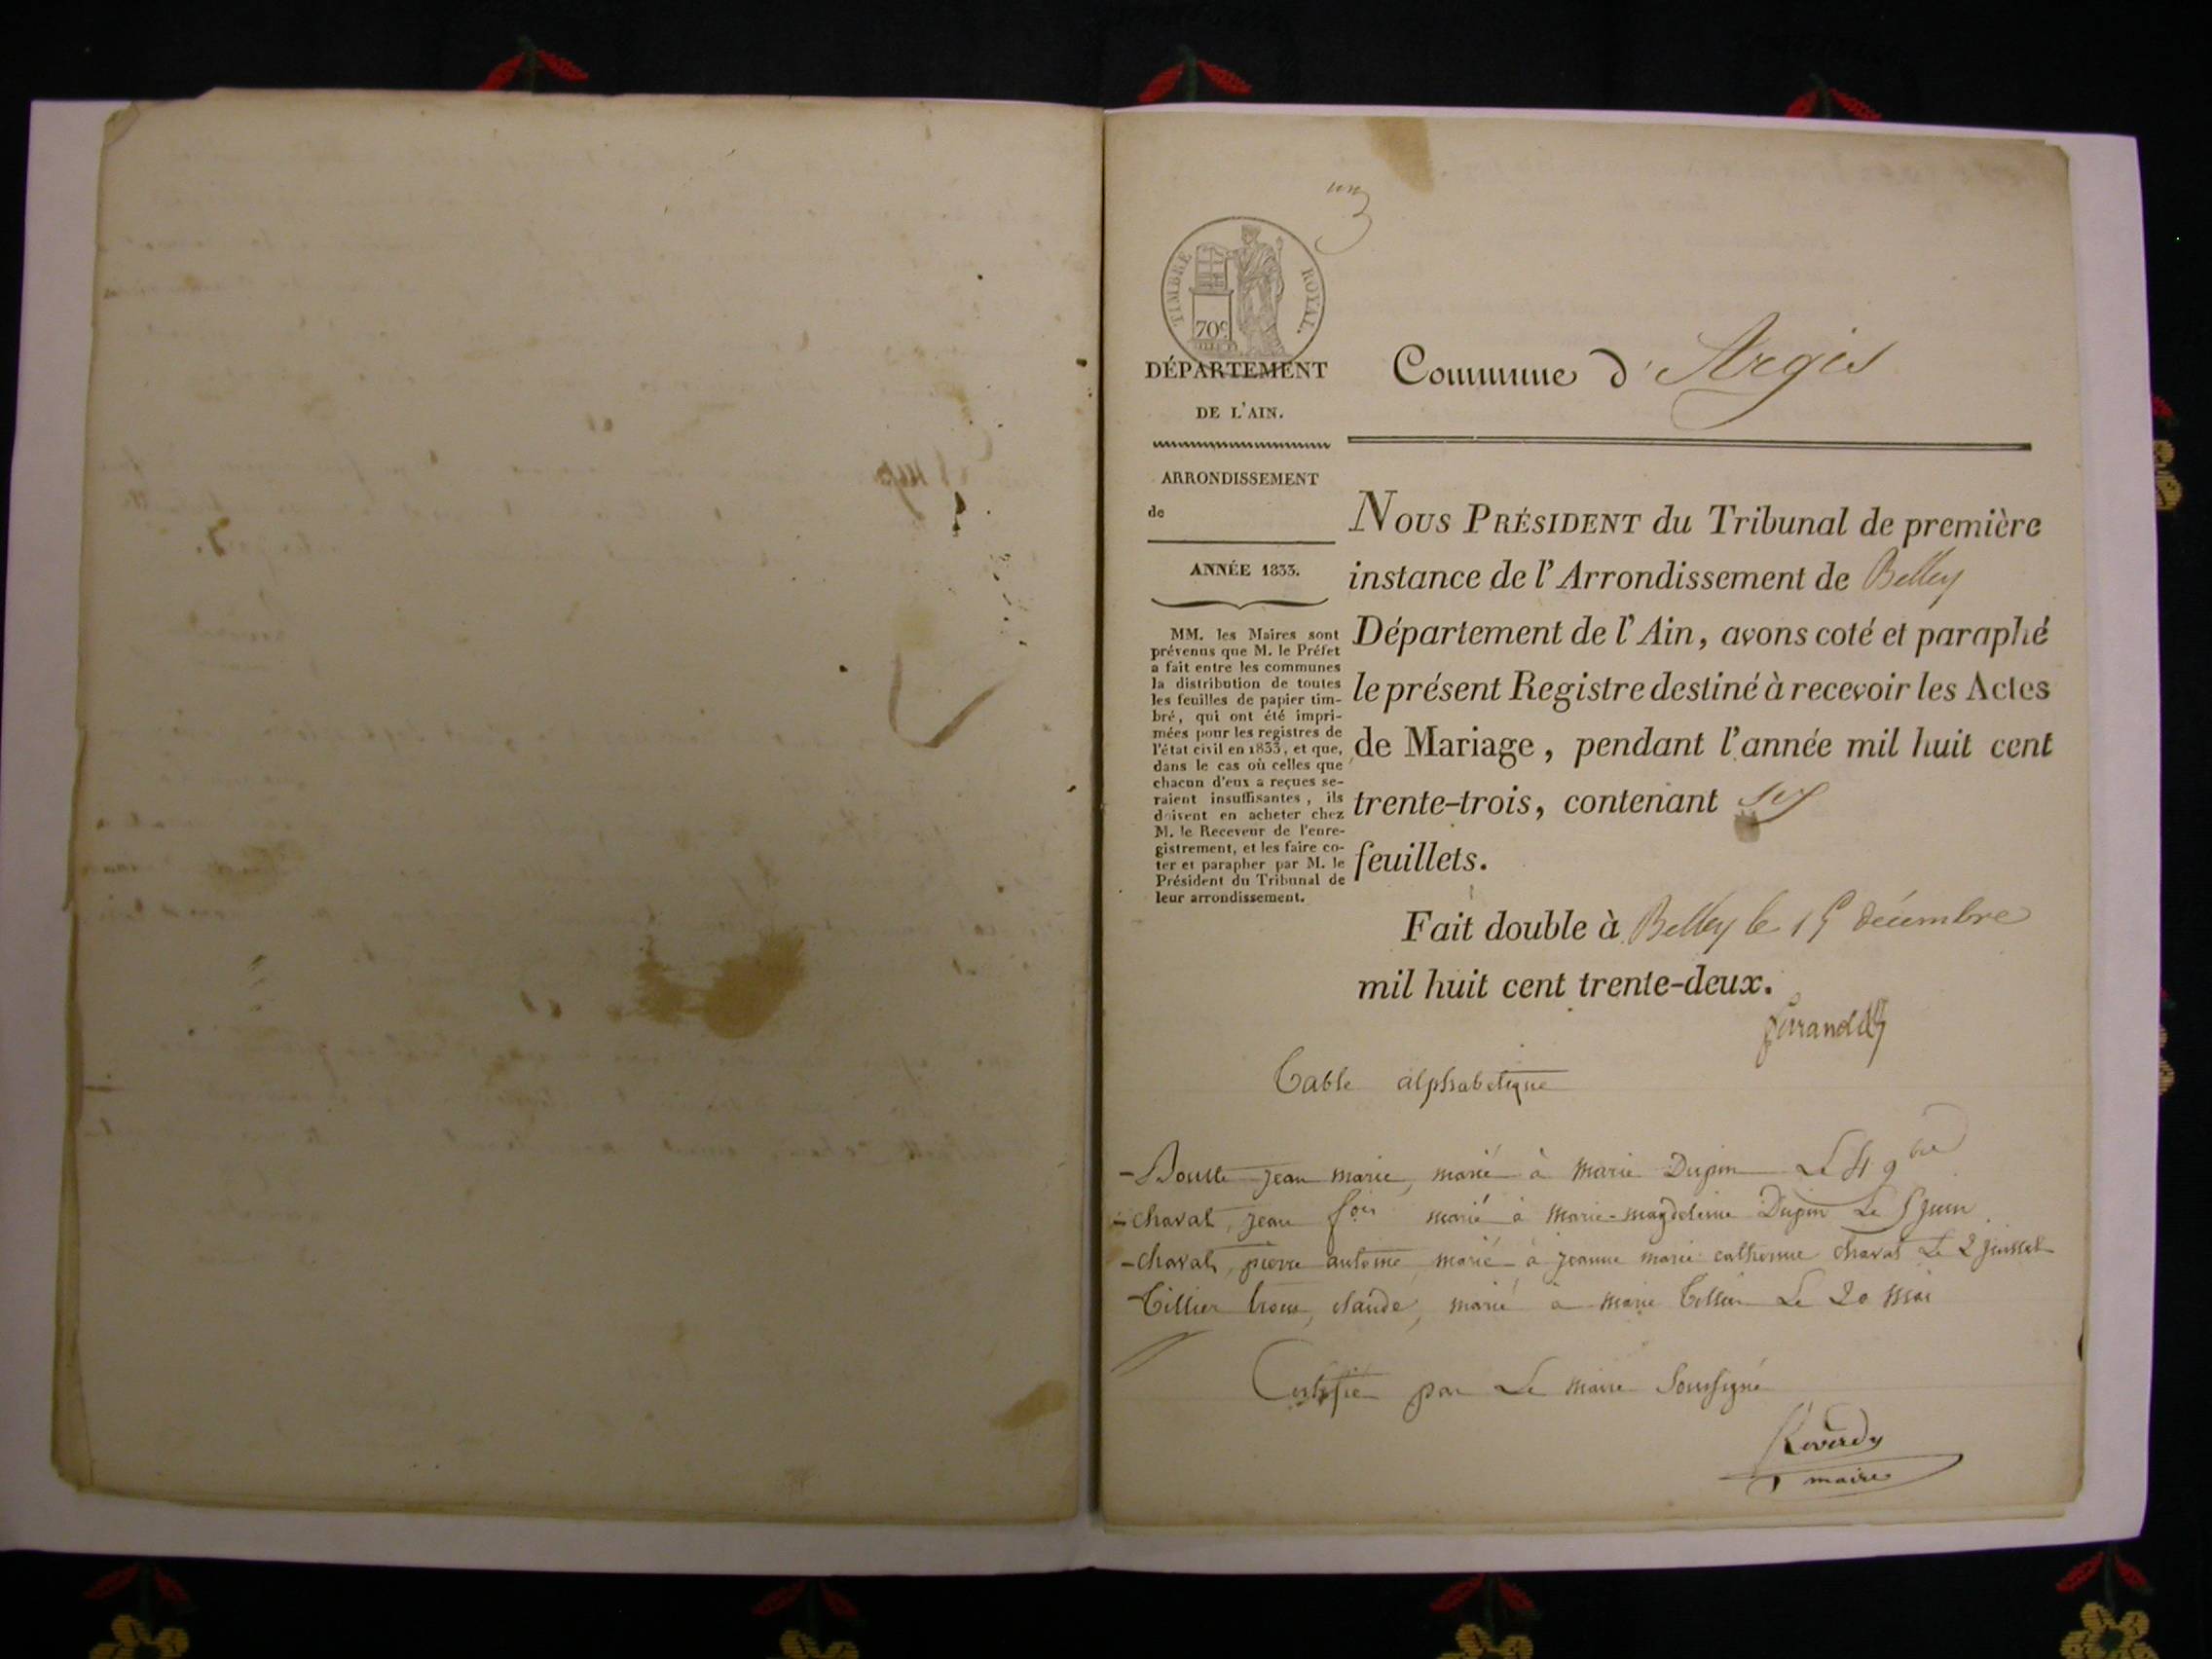 un
TIMBRE ROYAL.
70c
DÉPARTEMENT
DE L'AIN.
Commune d'Argis
ARRONDISSEMENT
de
ANNÉE 1833.
MM. les Maires sont
prévenus que M. le Préfet
a fait entre les communes
la distribution de toutes
les feuilles de papier tim-
bré, qui ont été impri-
mées pour les registres de
l'état civil en 1833, et que,
dans le cas où celles que
chacun d'eux a reçues se-
raient insuffisantes, ils
doivent en acheter chez
M. le Receveur de l'enre-
gistrement, et les faire co-
ter et parapher par M. le
Président du Tribunal de
leur arrondissement.
NOUS PRÉSIDENT du Tribunal de première
instance de l'Arrondissement de Belley
Département de l'Ain, avons coté et paraphé
le présent Registre destiné à recevoir les Actes
de Mariage, pendant l'année mil huit cent
trente-trois, contenant six
feuillets.
Fait double à Belley le 15 décembre
mil huit cent trente-deux.
Table alphabetique
- jean marie, marié à marie Dupin Le 4 9bre
- chavat, jean fois marié à Marie-magdeleine Dupin Le 5 juin
- chavat, pierre antoine, marié à jeanne marie catherine chavat Le 2 juillet
- Tillier claude, marié à marie Tillier Le 20 mai
Certifié par Le maire Soussigné
Reverdy
maire